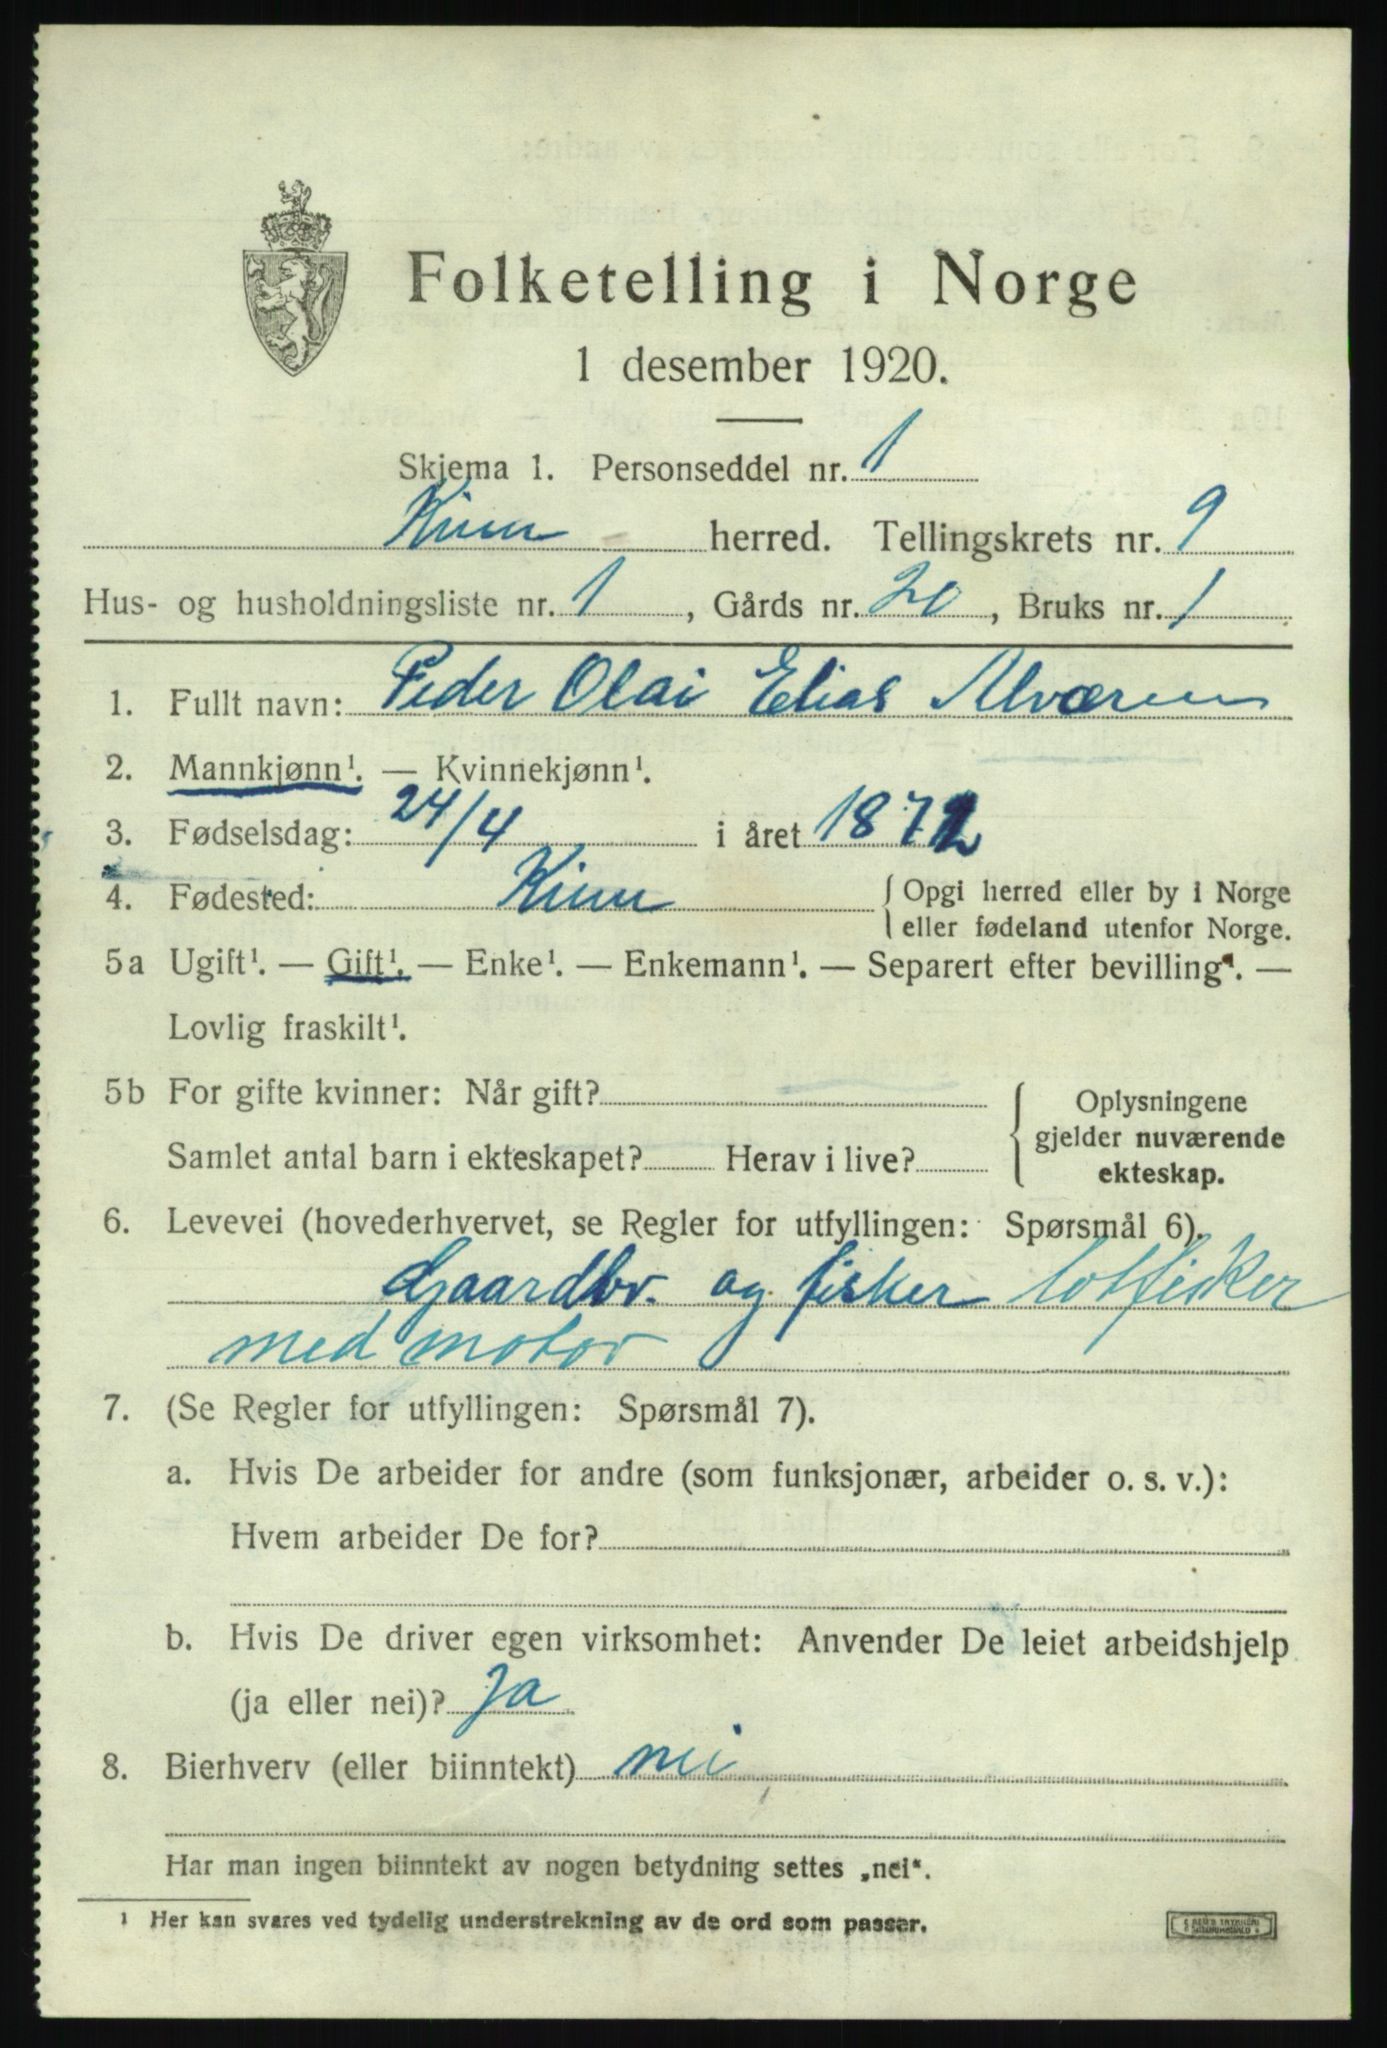 Folketelling i Norge
1 desember 1920.
Skjema 1. Personseddel nr. 1
Kinn herred. Tellingskrets nr. 9
Hus- og husholdningsliste nr. 1, Gårds nr. 20, Bruks nr. 1
1. Fullt navn: Peder Olai Elias Alværen
2. Mannkjønn¹. — Kvinnekjønn¹.
3. Fødselsdag: 24/4 i året 1872
4. Fødested: Kinn { Opgi herred eller by i Norge
eller fødeland utenfor Norge.
5a Ugift¹. — Gift¹. — Enke¹. — Enkemann¹. — Separert efter bevilling¹. —
Lovlig fraskilt¹.
5b For gifte kvinner: Når gift?
Samlet antal barn i ekteskapet? Herav i live?
Oplysningene
gjelder nuværende
ekteskap.
6. Levevei (hovederhvervet, se Regler for utfyllingen: Spørsmål 6).
Gaardbr. og fisker lotfisker
med motor
7. (Se Regler for utfyllingen: Spørsmål 7).
a. Hvis De arbeider for andre (som funksjonær, arbeider o. s. v.):
Hvem arbeider De for?
b. Hvis De driver egen virksomhet: Anvender De leiet arbeidshjelp
(ja eller nei)? Ja
8. Bierhverv (eller biinntekt) nei
Har man ingen biinntekt av nogen betydning settes „nei“.
¹ Her kan svares ved tydelig understrekning av de ord som passer.